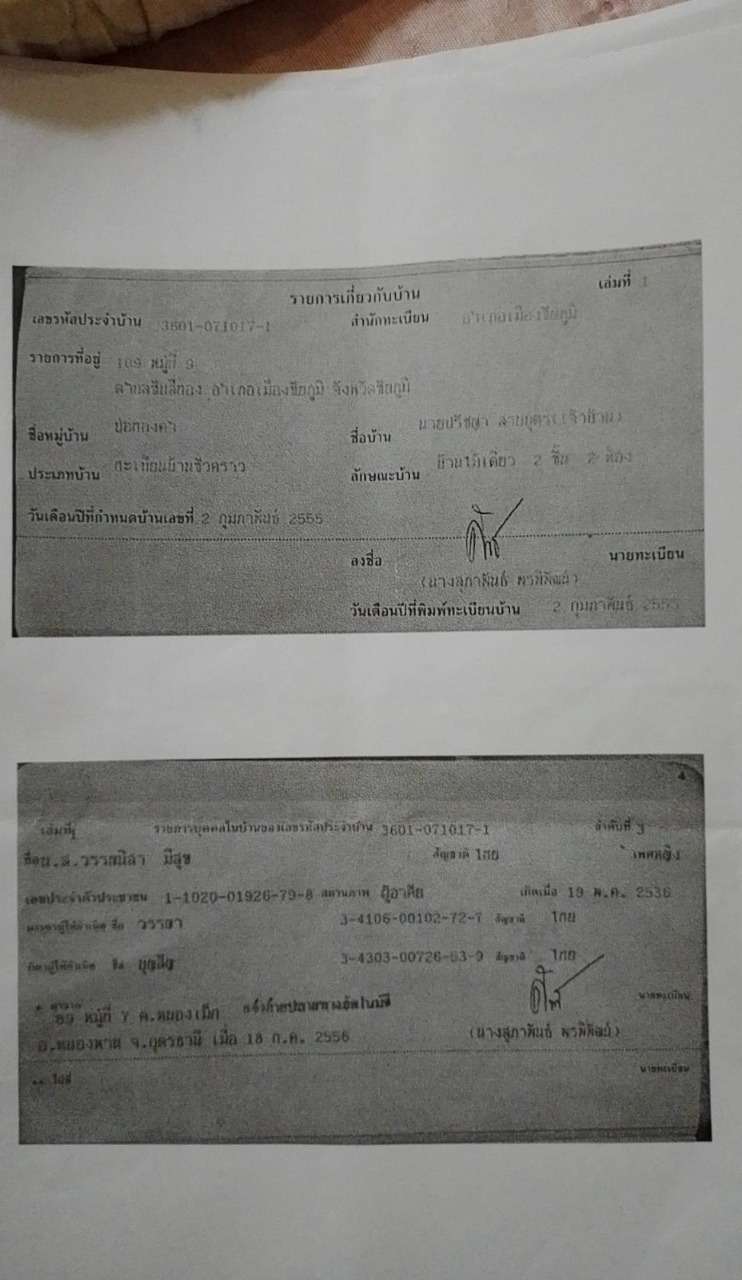 รายการเกี่ยวกับบ้าน เล่มที่ 1
เลขรหัสประจำบ้าน 3601-071017-1 สำนักทะเบียน อำเภอเมืองชัยภูมิ
รายการที่อยู่ 109 หมู่ที่ 9
ตำบลซับสีทอง อำเภอเมืองชัยภูมิ จังหวัดชัยภูมิ
ชื่อหมู่บ้าน บ่อทองคำ ชื่อบ้าน นายปรัชญา สายบุตร(เจ้าบ้าน)
ประเภทบ้าน ทะเบียนบ้านชั่วคราว ลักษณะบ้าน บ้านไม้เดี่ยว 2 ชั้น 2 ห้อง
วันเดือนปีที่กำหนดบ้านเลขที่ 2 กุมภาพันธ์ 2555
ลงชื่อ นายทะเบียน
(นางสุภาพันธ์ พรพิพัฒน์)
วันเดือนปีที่พิมพ์ทะเบียนบ้าน 2 กุมภาพันธ์ 2555
4
เล่มที่ 1 รายการบุคคลในบ้านของเลขรหัสประจำบ้าน 3601-071017-1 ลำดับที่ 3
ชื่อ น.ส.วรรณนิสา มีสุข สัญชาติ ไทย เพศ หญิง
เลขประจำตัวประชาชน 1-1020-01926-79-8 สถานภาพ ผู้อาศัย เกิดเมื่อ 19 พ.ค. 2536
มารดาผู้ให้กำเนิด ชื่อ วรรษา 3-4106-00102-72-7 สัญชาติ ไทย
บิดาผู้ให้กำเนิด ชื่อ 3-4303-00726-53-9 สัญชาติ ไทย
* มาจาก นายทะเบียน
89 หมู่ที่ 7 ต.หนองเม็ก แจ้งย้ายปลายทางอัตโนมัติ
อ.หนองหาน จ.อุดรธานี เมื่อ 18 ก.ค. 2556 (นางสุภาพันธ์ พรพิพัฒน์)
** ไปที่ นายทะเบียน